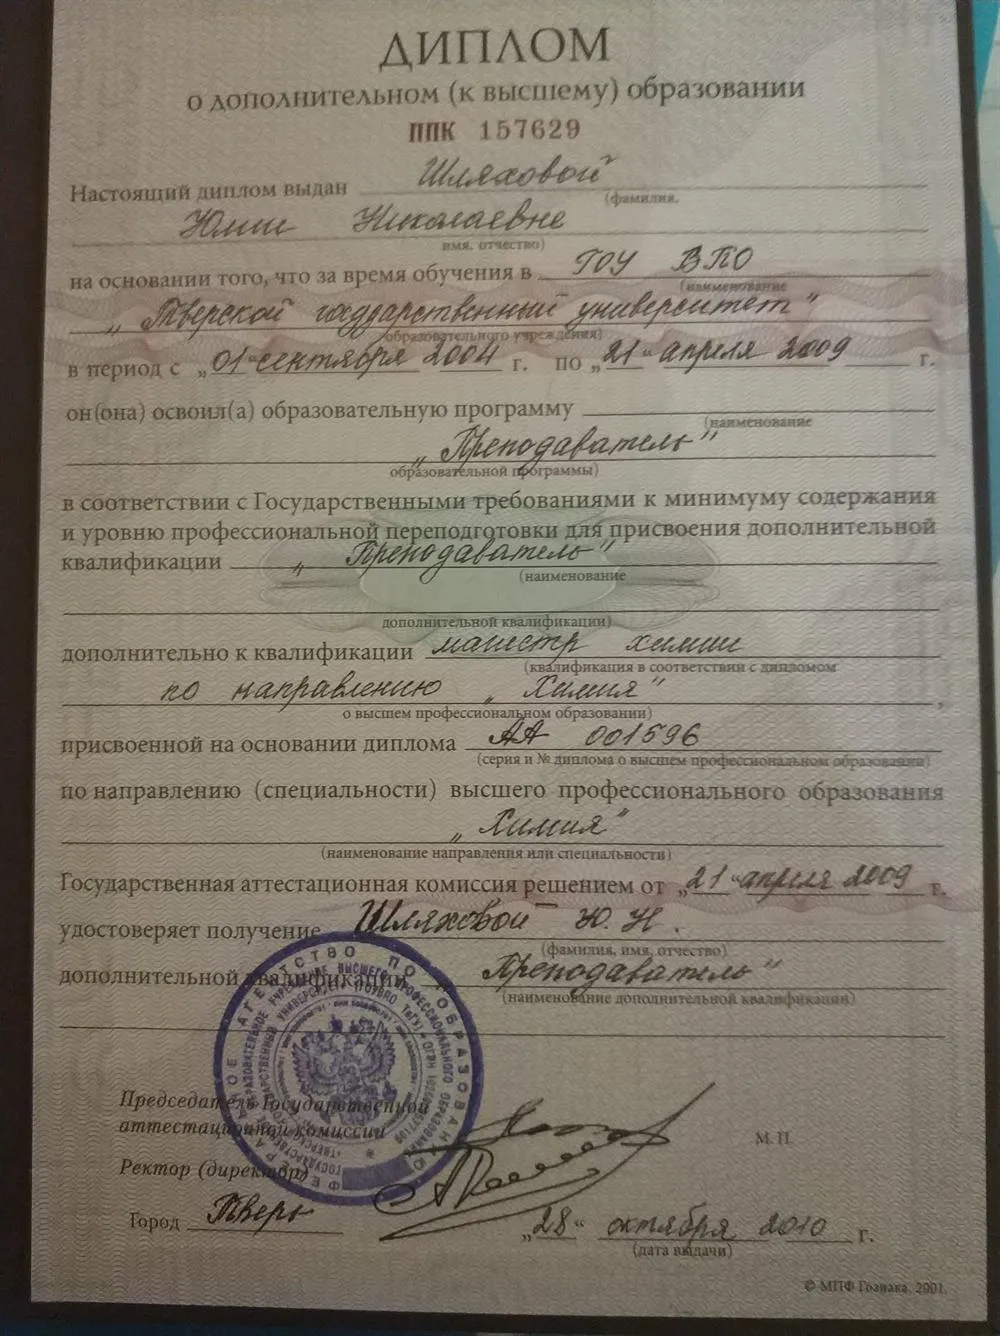 ДИПЛОМ
о дополнительном (к высшему) образовании
ППК 157629
Настоящий диплом выдан Шляховой
(фамилия,
Юлии Николаевне
имя, отчество)
на основании того, что за время обучения в ГОУ ВПО
(наименование
„Тверской государственный университет"
образовательного учреждения)
в период с „01" сентября 2004 г. по „21" апреля 2009 г.
он(она) освоил(а) образовательную программу
(наименование
„Преподаватель"
образовательной программы)
в соответствии с Государственными требованиями к минимуму содержания
и уровню профессиональной переподготовки для присвоения дополнительной
квалификации „Преподаватель"
(наименование
дополнительной квалификации)
дополнительно к квалификации магистр химии
(квалификация в соответствии с дипломом
по направлению „Химия",
о высшем профессиональном образовании)
присвоенной на основании диплома АА 001596
(серия и № диплома о высшем профессиональном образовании)
по направлению (специальности) высшего профессионального образования
„Химия"
(наименование направления или специальности)
Государственная аттестационная комиссия решением от „21" апреля 2009 г.
удостоверяет получение Шляховой Ю. Н.
(фамилия, имя, отчество)
дополнительной квалификации „Преподаватель"
(наименование дополнительной квалификации)
Председатель Государственной
аттестационной комиссии
М. П.
Ректор (директор)
Город Тверь „28" октября 2010 г.
(дата выдачи)
© МПФ Гознака. 2001.